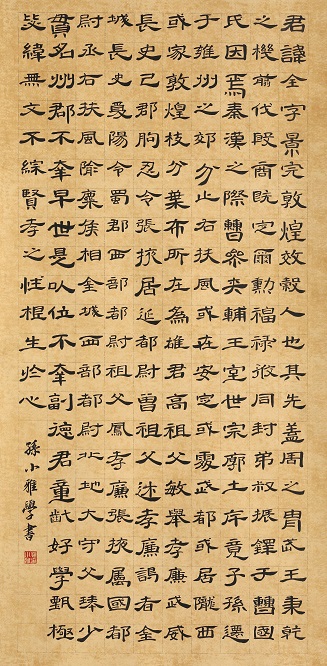 君諱全字景完敦煌效穀人也其先蓋周之胄武王秉乾
之機翦伐殷商既定爾勳福祿攸同封弟叔振鐸于曹國
氏因焉秦漢之際曹參夾輔王室世宗廓土斥竟子孫遷
于雍州之郊分止右扶風或在安定或處武都或居隴西
或家敦煌枝分葉布所在為雄君高祖父敏舉孝廉武威
長史巴郡朐忍令張掖居延都尉曾祖父述孝廉謁者金
城長史夏陽令蜀郡西部都尉祖父鳳孝廉張掖屬國都
尉丞右扶風隃麋侯相金城西部都尉北地大守父琫少
貫名州郡不幸早世是以位不幸副德君童齔好學甄極
毖緯無文不綜賢孝之性根生於心
孫小雅學書